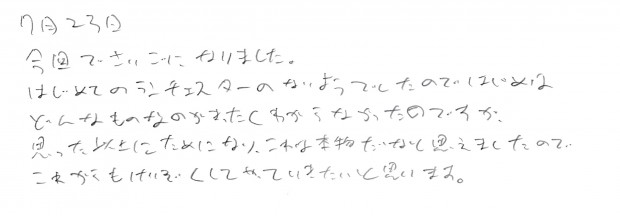 7月23日
今回でさいごになりました。
はじめてのランチェスターのないようでしたのではじめは
どんなものなのかまったくわからなかったのですが、
思った以上にためになり、これは本物だなと思えましたので
これからもけいぞくしてやっていきたいと思います。